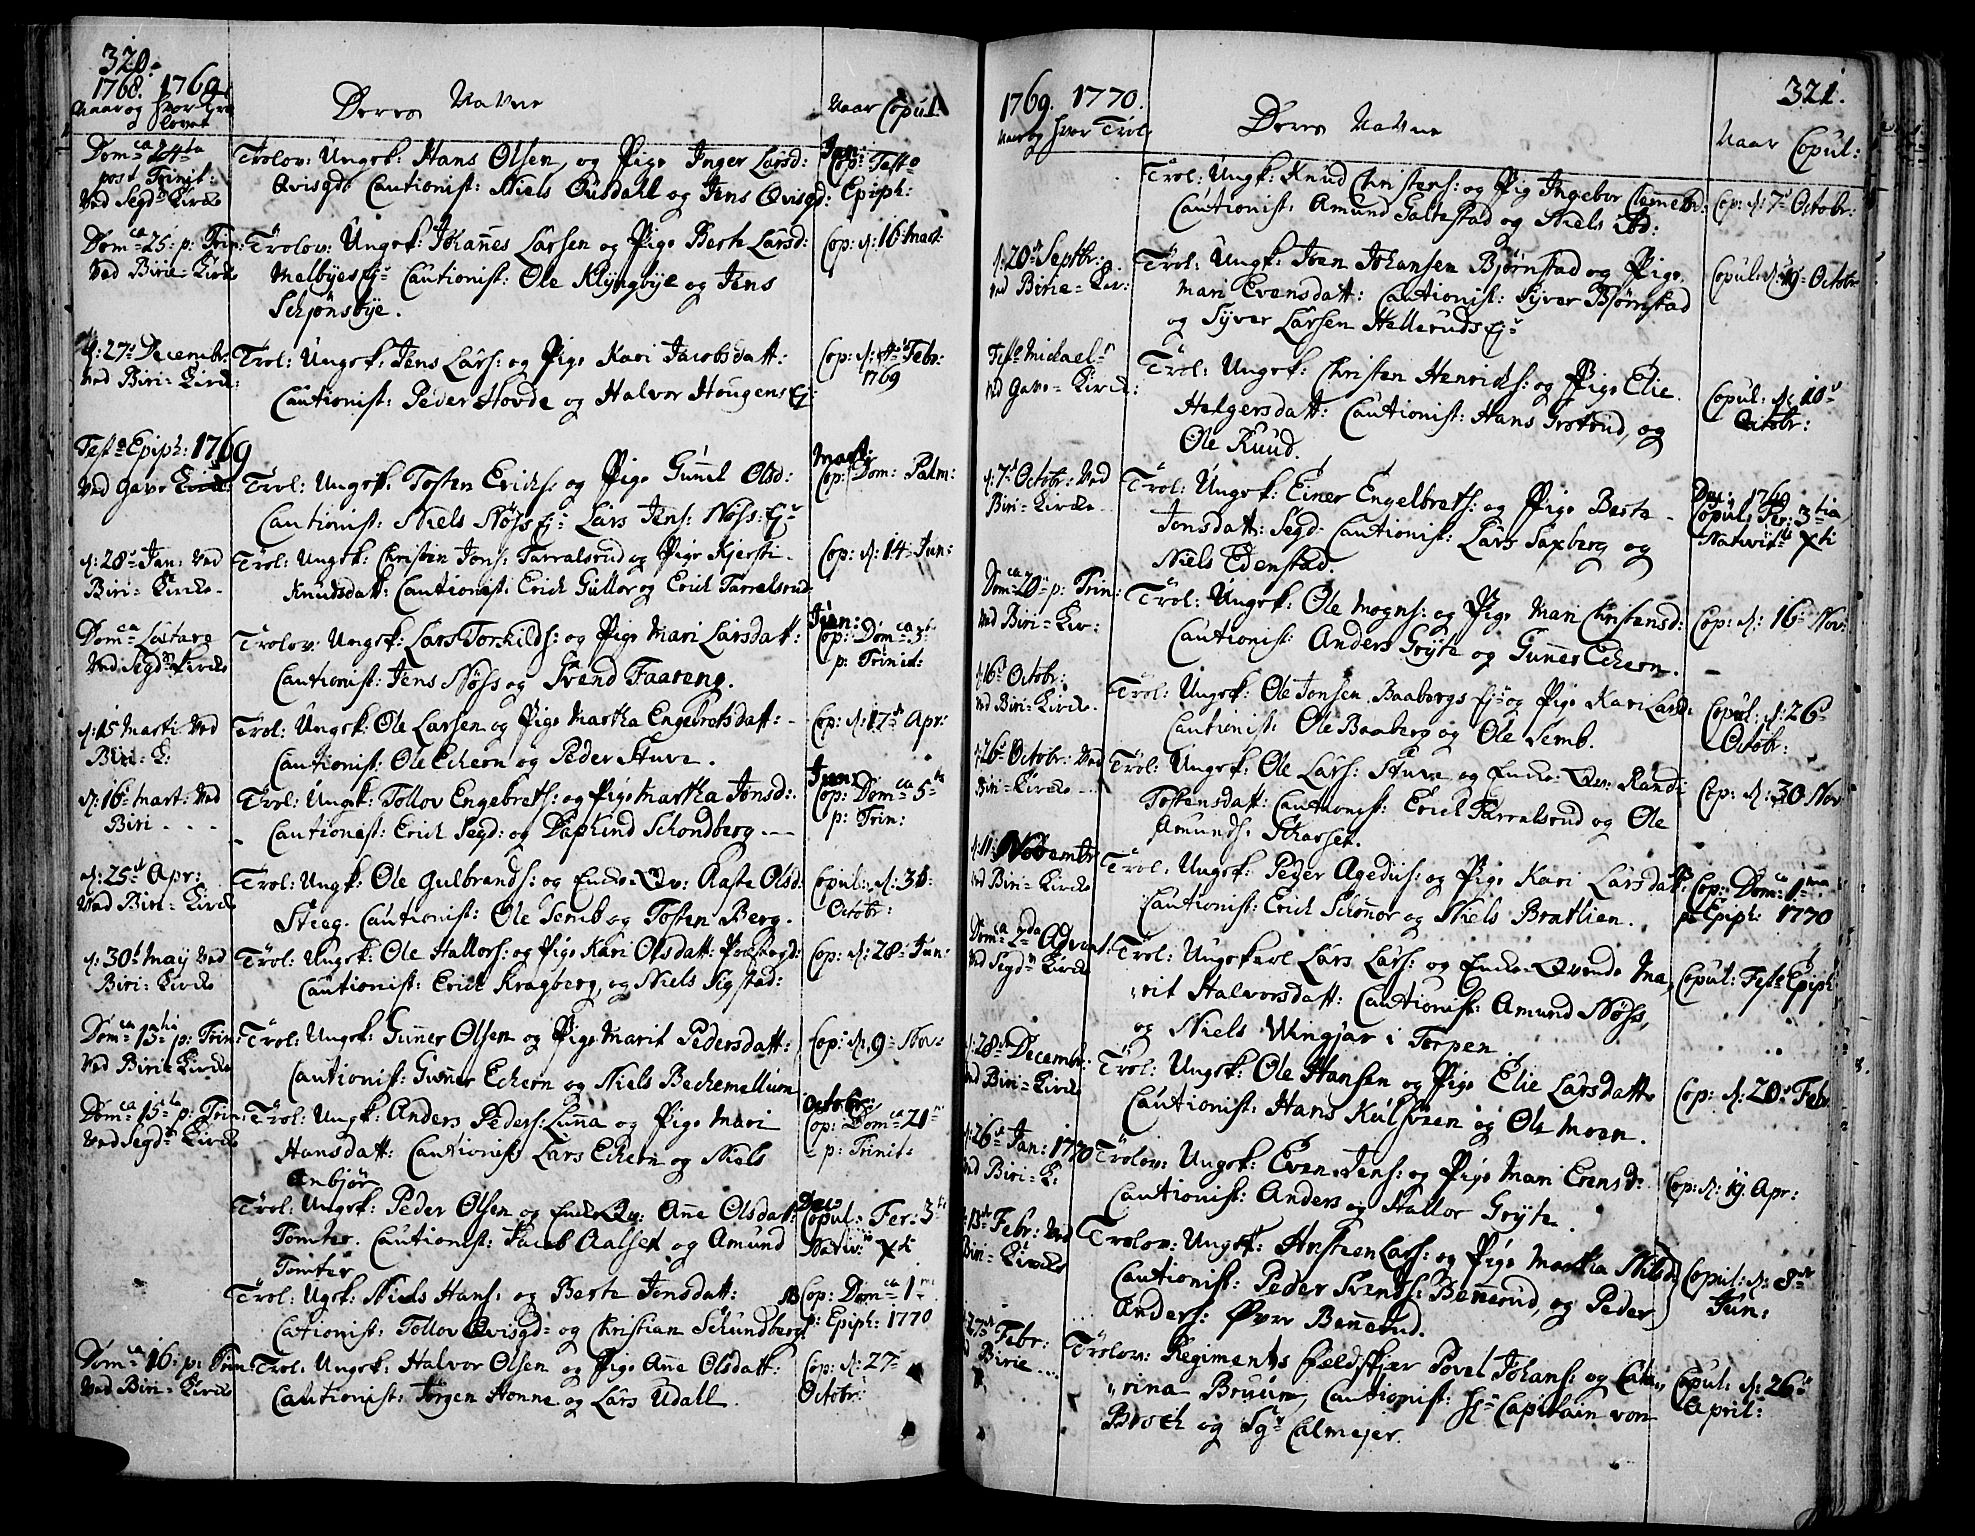 320.
1768. 1769
Naar og hvor Tro
lovet
Deres Navne
Naar Copul.
Dom: ca 24 ta
post Trinit:
Ved Segd: Kircke
Trolov: Ungek: Hans Olsen, og Pige Inger Larsd:
Qvisgd: Cautionist: Niels Ousdahl og Jens Qvisgd:
Jan:
Cop: Fest:
Epiph:
Dom: ca 25: p: Trin:
Ved Birie-Kircke
Trolov: Ungek: Johannes Larsen og Pige Berte Larsd:
Melbyes Ej: Cautionist: Ole Klyngbye og Jens
Schjønsbye.
Cop: d: 16 Mart:
d: 27: Decembr
Ved Biri-Kircke:
Trol: Ungek: Jens Lars: og Pige Kari Jacobsdatt:
Cautionist: Peder Hovde og Halvor Hougens Ej:
Cop: d: Febr:
1769
Festo Epiph: 1769
Ved Gave Kircke:
Trol: Ungek: Tosten Erichs: og Pige Gunel Olsd:
Cautionist: Niels Nøss Ej: Lars Jens: Nøss: Ej:
Mart:
Cop: Dom: Palm:
d: 28: Jan: Ved
Biri-Kircke-
Trol: Ungek: Christen Jons: Tarralsrud og Pige Kjersti
Knudsdatt: Cautionist: Erich Gullor og Erich Tarralsrud
Cop: d: 14: Jun:
Dom: ca Lætare
Ved Segd: Kircke
Trolov: Ungek: Lars Torkilds: og Pige Mari Larsdatt:
Cautionist: Jens Nøss og Svend Faareng.
Jun:
Cop: Dom: ca 3:
p: Trinit:
d: 15 Marti: Ved
Biri-K:
Trol: Ungek: Ole Larsen og Pige Martha Engebretsdatt:
Cautionist: Ole Echern og Peder Stuve.
Cop: d: 17: Apr:
d: 16: Mart: Ved
Biri
Trol: Ungk: Tollov Engebreths: og Pige Martha Jonsd:
Cautionist: Erich Segd: og Daphind Schondberg
Jun:
Cop: Dom: ca 5
p: Trin:
d: 25: Apr:
Ved Biri-Kircke
Trol: Ungk: Ole Gulbrands: og Encke-Qv: Aaste Olsd:
Steeg. Cautionist: Ole Semb og Tosten Berg.
Copul: d: 31:
Octobr:
d: 30: May Ved
Biri-Kircke
Trol: Ungek: Ole Hallors: og Pige Kari Olsdatt: Postegd:
Cautionist: Erich Kragberg, og Niels Sigstad:
Cop: d: 28: Jun:
Dom: ca 13 tia p: Trin:
Ved Biri-Kircke
Trol: Ungek: Gunner Olsen og Pige Marit Pedersdatt:
Cautionist: Gunner Echern og Niels Bechemellum
Cop: d: 9: Nov:
Dom: ca 15 ta p: Trin:
Ved Segd: Kircke
Trol: Ungk: Anders Peders: Lunna og Pige Mari
Hansdatt: Cautionist: Lars Echern og Niels
Anbjør
Octobr:
Cop: Dom: ca 21
p: Trinit:
Trol: Ungek: Peder Olsen og Encke Qv: Anne Olsdatt:
Tomter. Cautionist: Jacob Aalset og Amund
Tomter
Dec
Copul: Fer: 3
Nativ: Xti
Trol: Ugek: Niels Hans: og Berte Jonsdatt:
Cationist: Tollov Qvisgd: og Christian Schundberg
Cop: Dom: ca 1
p: Epiph: 1770
Dom: ca 16: p: Trin:
Ved Biri-Kircke
Trol: Ungek: Halvor Olsen og Pige Anne Olsdatt:
Cautionist: Jørgen Honne og Lars Udall.
Cop: d: 27
Octobr:
321.
1769. 1770.
Naar og hvor Trol:
Deres Navne
Naar Copul:
Trol: Ungk: Knud Christens: og Pig Ingebor
Cautionist: Amund Galterstad og Niels
Cop: d: 7: Octobr:
d: 20: Septbr:
Ved Birie-Kir:
Trol: Ungk: Joen Johansen Bjørnstad og Pige
Mari Evensdatt: Cautionist: Syver Bjørnstad
og Syver Larsen Helleruds Ej:
Copul: d: 19: Octobr
Festo Michael:
Ved Gave-Kircke:
Trol: Ungek: Christen Henrichs: og Pige Elie
Helgersdatt: Cautionist: Hans Grotrud, og
Ole Ruud.
Copul: d: 10:
Octobr:
d: 7: Octobr: Ved
Biri-Kircke
Trol: Ungek: Einer Engelbreths: og Pige Berte
Jonsdatt: Segd: Cautionist: Lars Saxberg og
Niels Edenstad.
Dec: 1769
Copul: Fer: 3 tia
Nativit: Xti
Dom: ca 20: p: Trin:
Ved Biri-Kir:
Trol: Ungek: Ole Mogns: og Pige Mari Christensd:
Cautionist: Anders Gryte og Gunner Echern.
Cop: d: 16: Nov:
d: 16: Octobr:
Ved Biri-Kircke
Trol: Ungek: Ole Jonsen Baabergs Ej: og Pige Kari Larsd:
Cautionist: Ole Baaberg og Ole Semb.
Copul: d: 26:
Octobr:
d: 26: Octobr: Ved
Biri-Kircke
Trol: Ungek: Ole Lars: Stuve og Encke-Qv: Randi
Tostensdatt: Cautionist: Erich Tarralsrud og Ole
Amunds: Skarset.
Cop: d: 30 Nov:
d: 11: Novembr
Ved Biri-Kircke
Trol: Ungek: Peder Agedus: og Pige Kari Larsdatt:
Cautionist: Erich Schonnor og Niels Bratlien.
Cop: Dom: ca 1 ma
p: Epiph: 1770
Dom: ca 2 da Advent:
Ved Segd: Kircke
Trol: Ungekarl Lars Lars: og Encke-Qvinde Ma,,
,,rit Halvorsdatt: Cautionist: Amund Nøss,
og Niels Wingjar i Torpen.
Copul: Festo Epiph:
d: 28: Decembr:
Ved Biri-Kircke
Trol: Ungek: Ole Hansen og Pige Elie Larsdatt:
Cautionist: Hans Kulsveen og Ole Moen.
Cop: d: 20: Febr.
d: 26: Jan: 1770
Ved Biri-K:
Trolov: Ungek: Even Jens: og Pige Mari Erensd:
Cautionist: Anders og Hallor Gryte.
Cop: d: 19. Apr:
d: 13: Febr: Ved
Biri-Kircke
Trolov: Ungek: Anstien Lars: og Pige Marthia Nilsd:
Cautionist: Peder Svends: Bennerud, og Peder
Anders: Øvre Bennerud.
Copul: d: 8:
Jun:
d: 27: Febr:
Ved Birie
Trolov: Regiments Feldskjær Povel Johans: og Cata,,
,,rina Bruun, Cautionist: Hr: Capitain von
Broch og Sgr: Calmejer.
Copul: d: 26:
April: